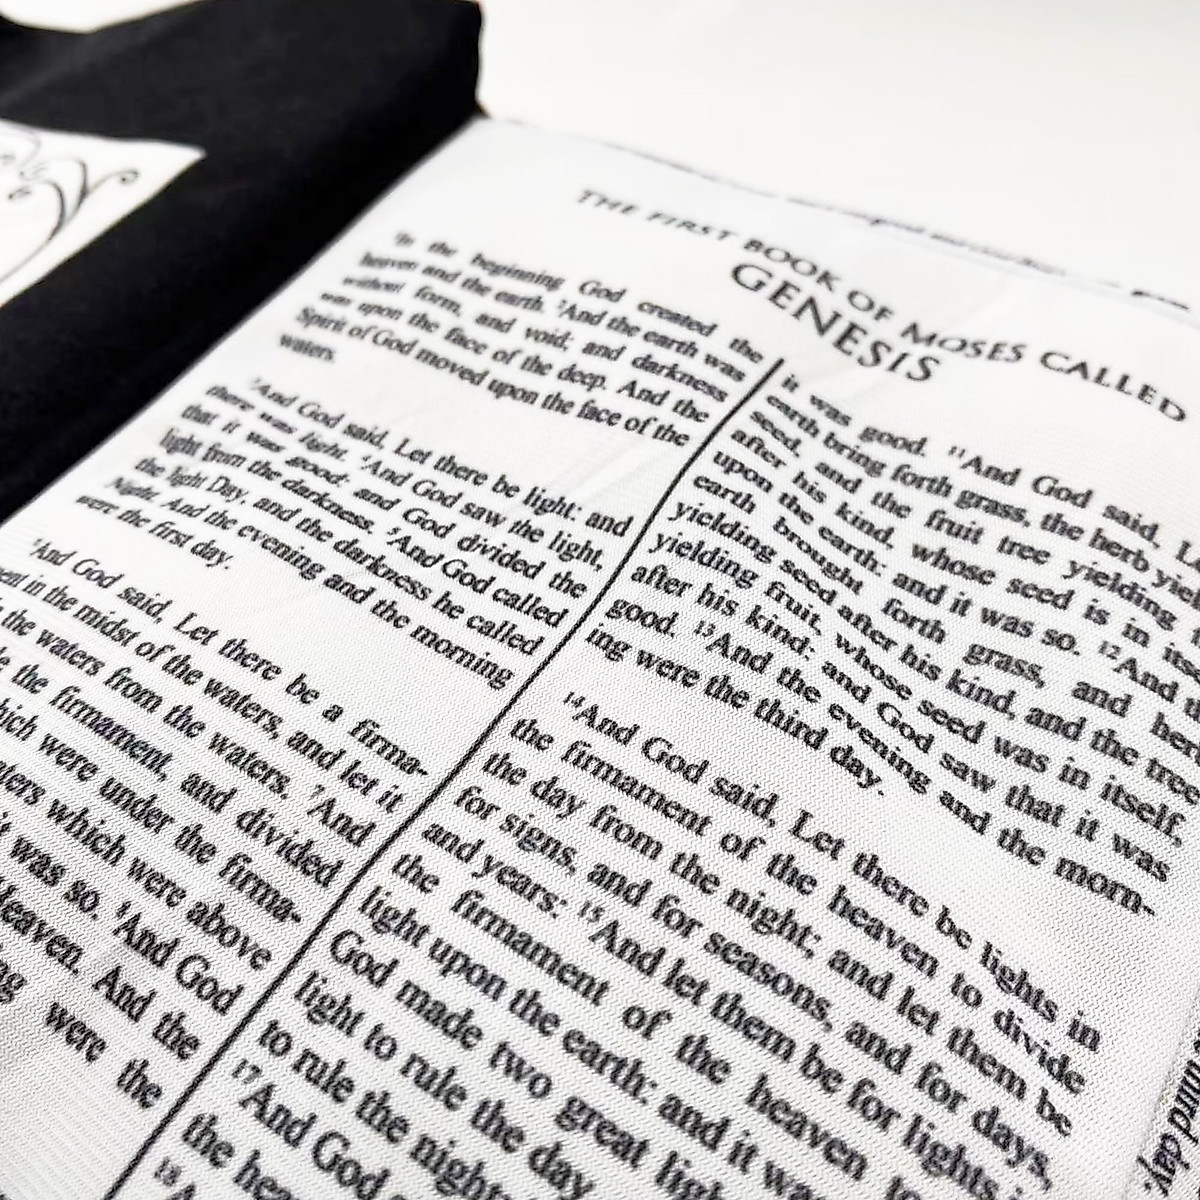 THE FIRST BOOK OF MOSES CALLED
GENESIS
¹In the beginning God created the
heaven and the earth. ²And the earth was
without form, and void; and darkness
was upon the face of the deep. And the
Spirit of God moved upon the face of the
waters.
³And God said, Let there be light: and
there was light. ⁴And God saw the light,
that it was good: and God divided the
light from the darkness. ⁵And God called
the light Day, and the darkness he called
Night. And the evening and the morning
were the first day.
⁶And God said, Let there be a firma-
in the midst of the waters, and let it
the waters from the waters. ⁷And
the firmament, and divided
which were under the firma-
which were above
it was so. ⁸And God
Heaven. And the
were the
it was good. ¹¹And God said,
earth bring forth grass, the herb
seed, and the fruit tree yielding
after his kind, whose seed is in
upon the earth: and it was so. ¹²And
earth brought forth grass, and
yielding seed after his kind, and the tree
yielding fruit, whose seed was in itself,
after his kind: and God saw that it was
good. ¹³And the evening and the morn-
ing were the third day.
¹⁴And God said, Let there be lights in
the firmament of the heaven to divide
the day from the night; and let them be
for signs, and for seasons, and for days,
and years: ¹⁵And let them be for lights
the firmament of the heaven
light upon the earth: and it
God made two great
light to rule the day
to rule the night
¹⁷And God
the
¹⁸
day.